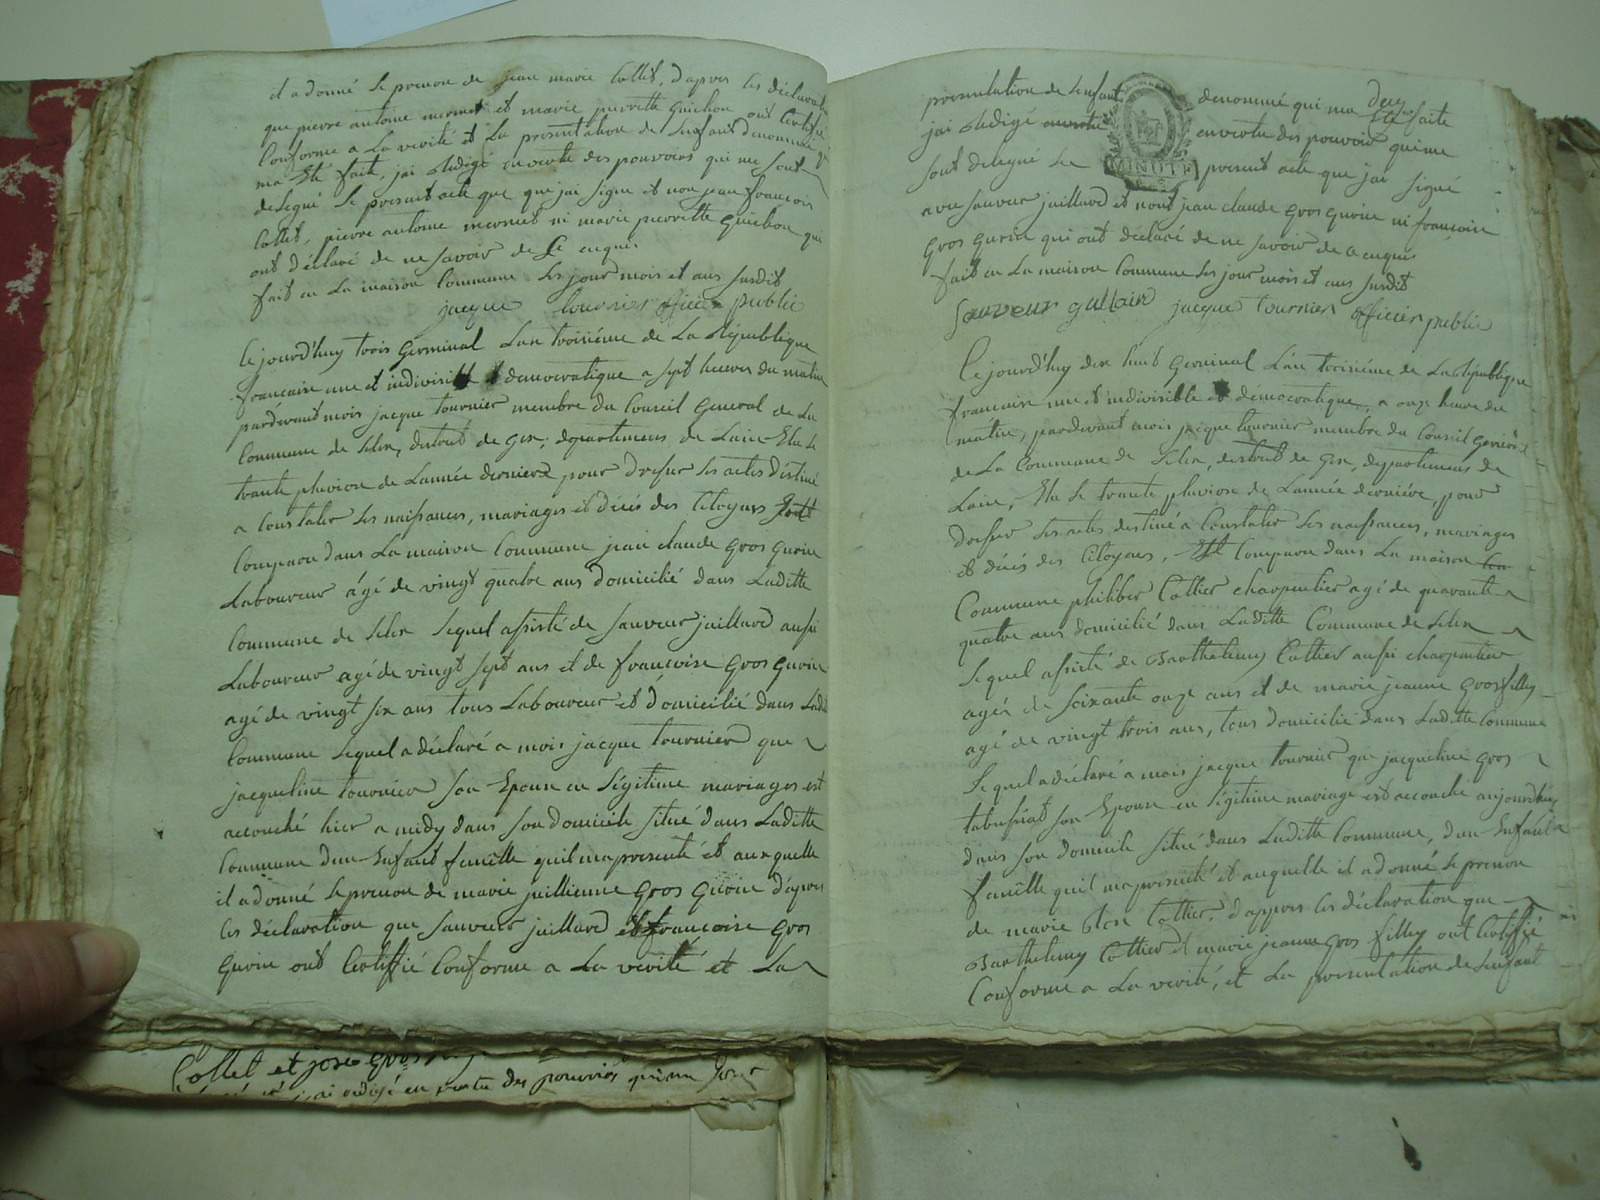 il a donné le prenon de jean marie Collet, d'apres les déclarat
que pierre antoine mermet et marie pierrette Guichon ont Certifié
Conforme a La verité et La presentation de Lenfant denommé
ma Eté faite, jai Redigé en vertu des pouvoirs qui me sont
delegué le present acte que jai signé et non jean francois
Collet, pierre antoine mermet ni marie pierrette Guichon qui
ont déclaré de ne savoir de Ce enquis
fait en La maison Commune les jour mois et ans susdit
jacque tournier officier public
Cejourd'huy trois Germinal Lan troisiéme de La République
francaise une et indivisible et democratique a sept heures du matin
pardevant mois jacque tournier membre du Conseil General de La
Commune de Selex, distrit de Gex, departement de Lain Elu le
trante pluviose de Lannée derniere pour dresser les actes destiné
a Constater les naissances, mariages et décés des Citoyens
Comparu dans La maison Commune jean claude Gros Gurin
Laboureur agé de vingt quatre ans domicilié dans Laditte
Commune de Selex lequel assisté de sauveur juillard aussi
Laboureur agé de vingt sept ans et de francoise Gros Gurin
agé de vingt six ans tous Laboureur et domicilié dans Ladi
Commune lequel a déclaré a mois jacque tournier que
jacqueline tournier son Epouse en légitime mariages est
accouché hier a midy dans son domicile situé dans Laditte
Commune dun Enfant famelle quil ma presenté et auxquelle
il a donné le prenon de marie jullienne Gros Gurin d'apres
les déclaration que sauveur juillard et francoise Gros
Gurin ont Certiffié Conforme a La verité et La
presentation de Lenfant denommé qui ma faite
jai Redigé en vertu des pouvoir qui me
sont delegué Le present acte que jai signé
MINUTE
avec sauveur juillard et nont jean claude Gros Gurin ni francoise
Gros Gurin qui ont déclaré de ne savoir de ce enquis
fait en La maison Commune les jour mois et ans susdit
sauveur jullair jacque tournier officier public
Cejourd'huy dix huit Germinal Lan troisiéme de La République
francaise une et indivisible et démocratique, a onze heure du
matin, pardevant mois jacque tournier membre du Conseil General
de La Commune de Selex, distrit de Gex, departement de
Lain, Elu le trante pluviose de Lannée derniére, pour
dresser les actes destiné a Constater les naissances, mariages
et décés des Citoyens, Comparu dans La maison
Commune philiber Cottier charpentier agé de quarante
quatre ans domicilié dans Laditte Commune de Selex
lequel assisté de Barthelemy Cottier aussi charpentier
agés de soixante onze ans et de marie jeanne Grosfilley
agé de vingt trois ans, tous domicilié dans Laditte Commune
lequel a déclaré a mois jacque tournier que jacqueline Gros
tabussiat son Epouse en légitime mariage est accouché aujourdhuy
dans son domicile situé dans Laditte Commune, dun Enfant
famelle quil ma presenté et auquelle il a donné le prenon
de marie Cottier, dappres les déclaration que
Barthelemy Cottier et marie jeanne Gros filley ont Certiffié
Conforme a La verité, et La presentation de Lenfant
Collet et Gros
jai redigé en vertu des pouvoirs qui me sont